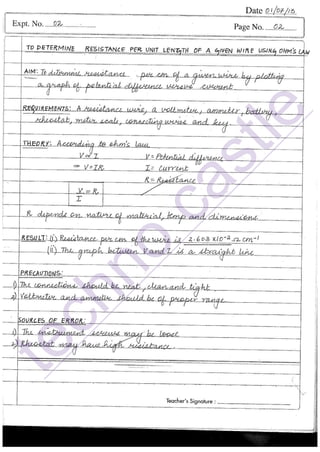 Date 01/07/18
Expt. No. 02
Page No. 02
TO DETERMINE RESISTANCE PER UNIT LENGTH OF A GIVEN WIRE USING OHM'S LAW
AIM: To determine resistance per cm of a given wire by plotting
a graph of potential difference versus current.
REQUIREMENTS: A resistance wire, a voltmeter, ammeter, battery,
rheostat, metre scale, connecting wires and key.
THEORY: According to ohm's law
V ∝ I V = Potential difference
⇒ V = IR I = Current
R = Resistance
V/I = R
R depends on nature of material, temp and dimensions.
RESULT: (i) Resistance per cm of the wire is 2.603 x 10⁻² Ω cm⁻¹
(ii) The graph between V and I is a straight line
PRECAUTIONS:
1) The connections should be neat, clean and tight.
2) Voltmeter and ammeter should be of proper range.
SOURCES OF ERROR:
1) The instrument screws may be loose
2) Rheostat may have high resistance.
Teacher's Signature :
techno castle